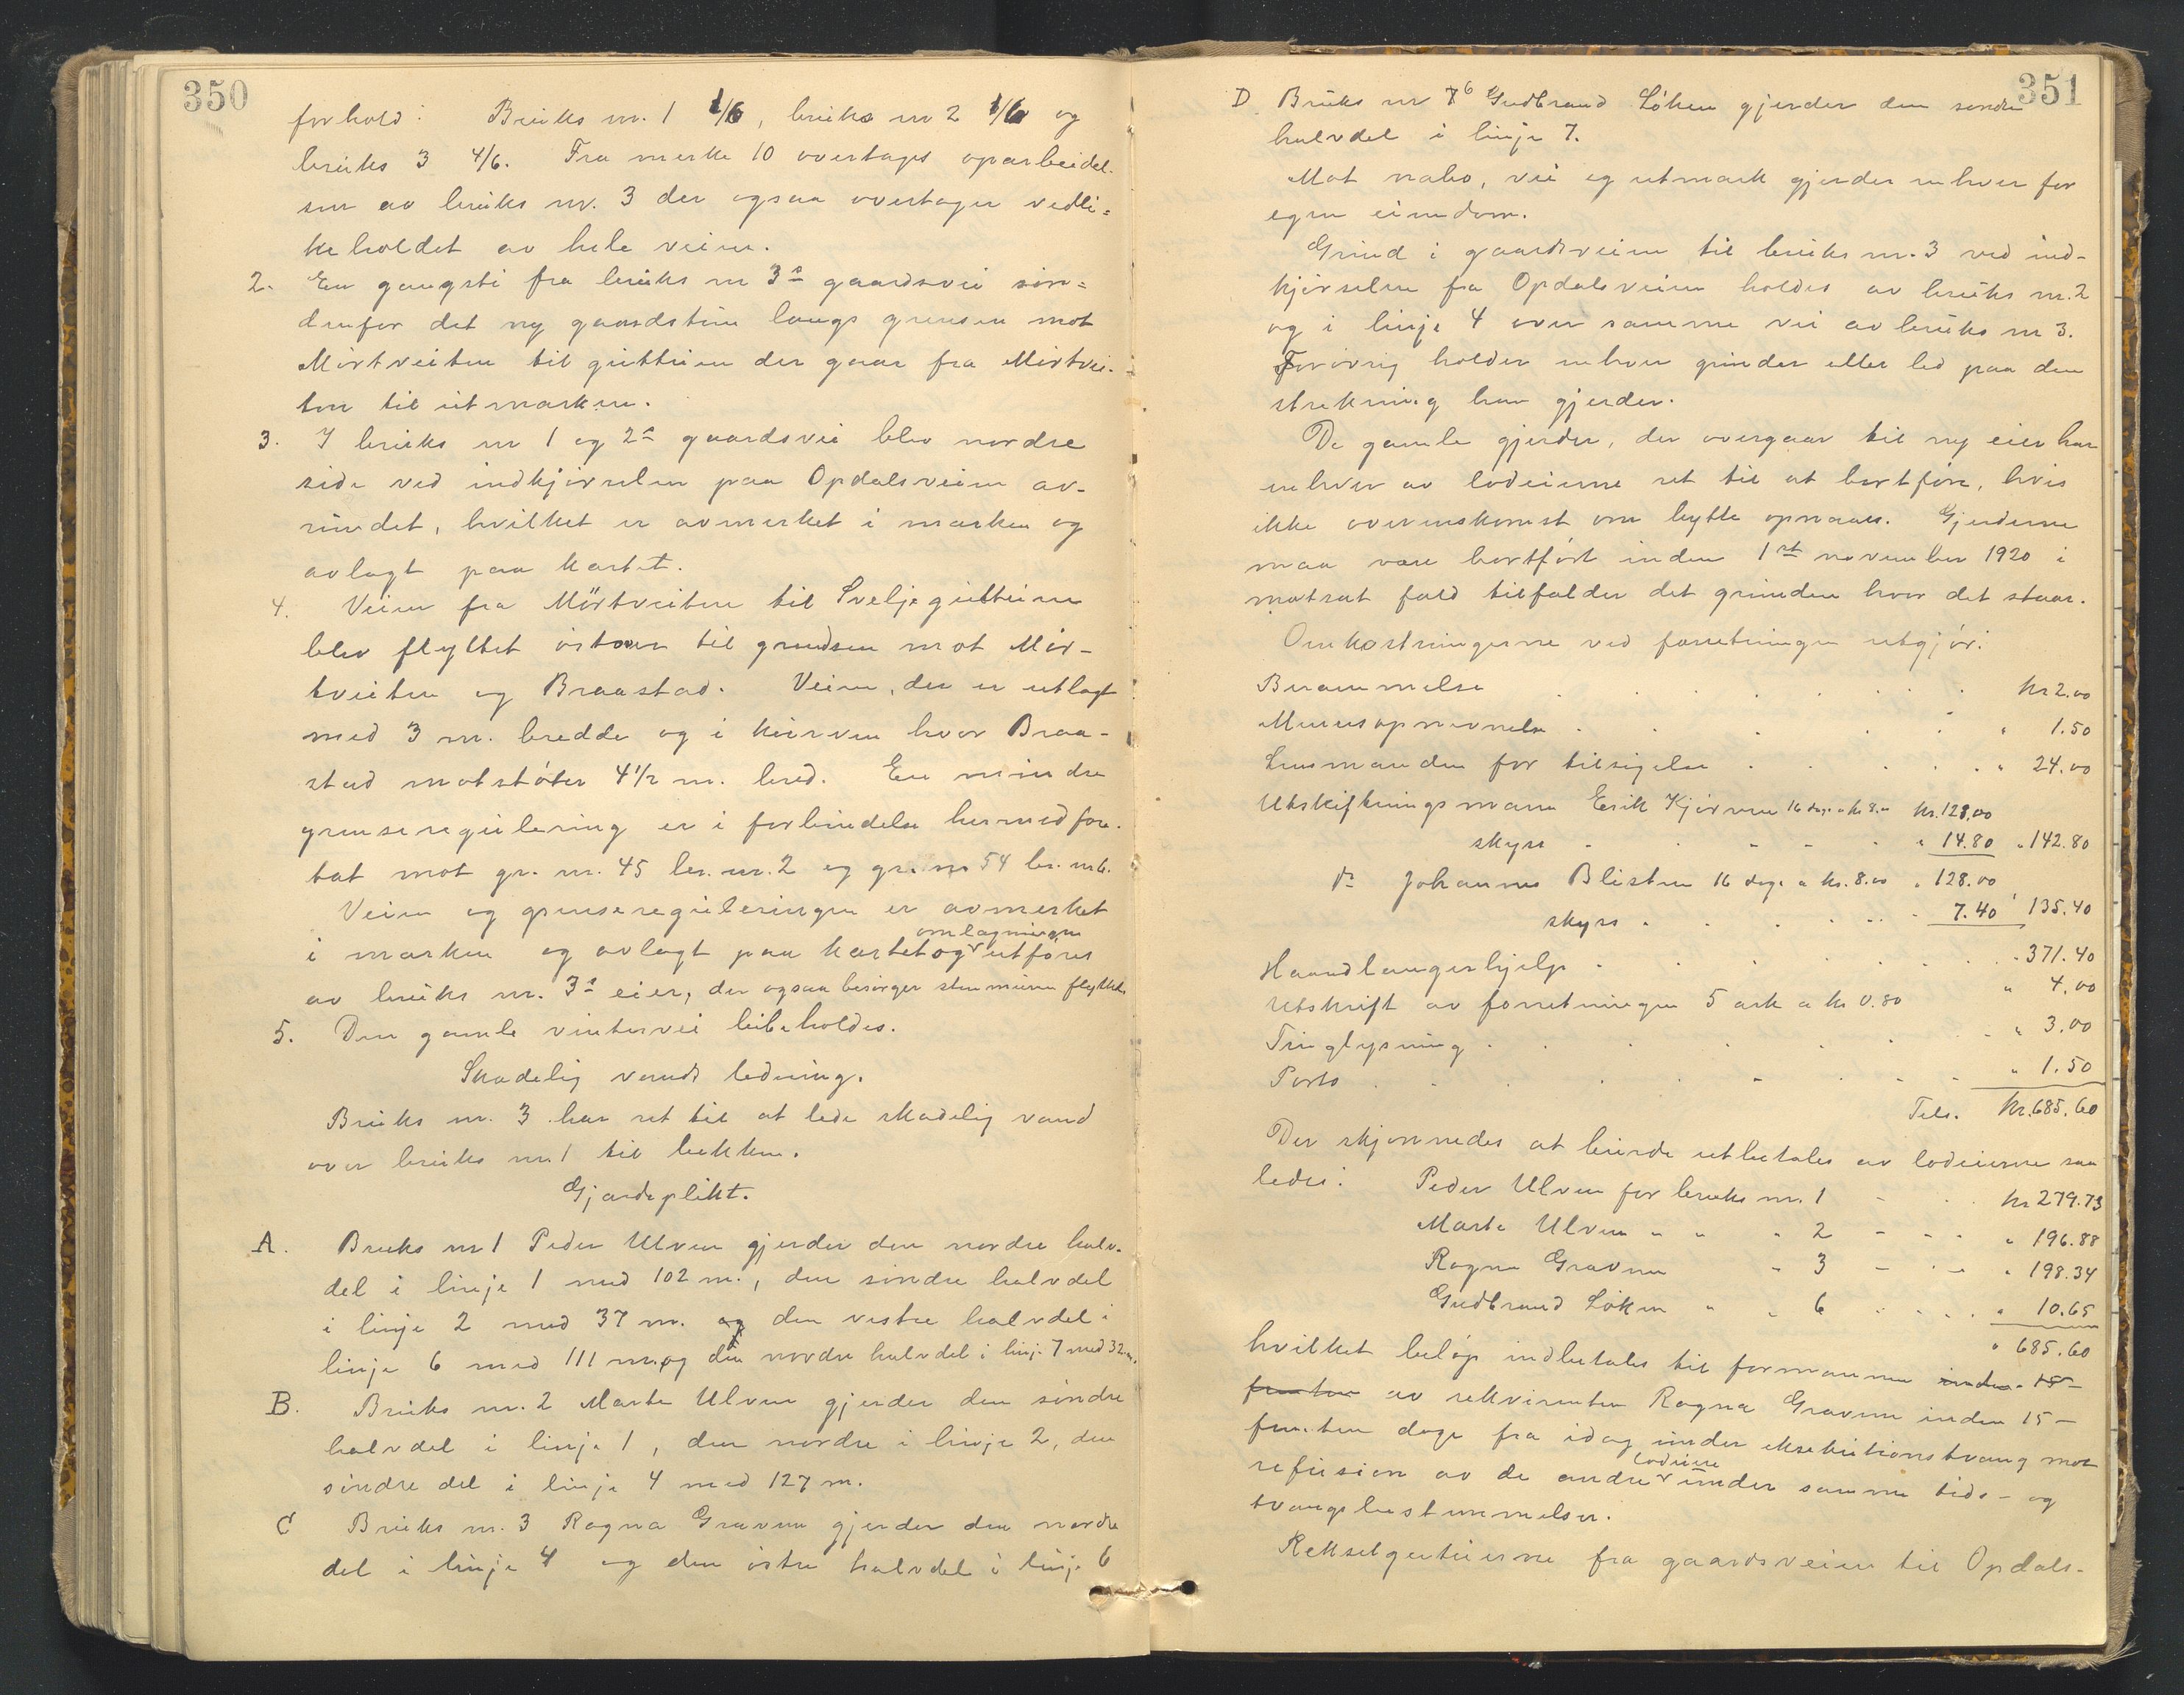 350
forhold: Bruks nr. 1 1/6, bruks nr 2 1/6 og
bruks 3 4/6. Fra merke 10 overtages oparbeidel-
sen av bruks nr. 3 der ogsaa overtager vedli=
keholdet av hele veien.
2. En gangsti fra bruks nr 3s gaardsvei søn=
denfor det ny gaardstun langs grensen mot
Mörtveiten til gutteien der gaar fra Mörtvei-
ten til utmarken.
3. I bruks nr 1 og 2s gaardsvei blev nordre
side ved indkjørselen paa Opdalsveien av-
rundet, hvilket er avmerket i marken og
avlagt paa kartet.
4. Veien fra Mörtveiten til Sveljegutteien
blev flyttet østover til grendsen mot Mör-
tveiten og Braastad. Veien, der er utlagt
med 3 m. bredde og i kurven hvor Braa-
stad motstøter 4 1/2 m. bred. En mindre
grenseregulering er i forbindelse hermed fore-
tat mot gr. nr. 45 br. nr. 2 og gr. nr 54 br. nr 6.
Veien og grensereguleringen er avmerket
i marken og avlagt paa kartet og omlægningen utføres
av bruks nr. 3s eier, der ogsaa besørger stenmuren flyttet.
5. Den gamle vintervei beibeholdes.
Skadelig vands ledning.
Bruks nr. 3 har ret til at lede skadelig vand
over bruks nr. 1 til bekken.
Gjærdeplikt.
A. Bruks nr 1 Peder Ulven gjerder den nordre halv-
del i linje 1 med 102 m., den søndre halvdel
i linje 2 med 37 m. og den vestre halvdel i
linje 6 med 111 m. og den nordre halvdel i linje 7 med 32 m.
B. Bruks nr. 2 Marte Ulven gjerder den søndre
halvdel i linje 1, den nordre i linje 2, den
søndre del i linje 4 med 127 m.
C Bruks nr. 3 Ragna Gravem gjerder den nordre
del i linje 4 og den østre halvdel i linje 6
351
D Bruks nr 6 Gudbrand Løken gjerder den søndre
halvdel i linje 7.
Mot nabo, vei og utmark gjerder enhver for
egen eiendom.
Grind i gaardsveien til bruks nr. 3 ved ind-
kjørselen fra Opdalsveien holdes av bruks nr. 2
og i linje 4 over samme vei av bruks nr 3.
Forøvrig holder enhver grinder eller led paa den
strekning han gjerder.
De gamle gjerder, der overgaar til ny eier har
enhver av lodeierne ret til at bortføre, hvis
ikke overenskomst om bytte opnaaes. Gjerderne
maa være bortført inden 1st november 1920 i
motsat fald tilfalder det grunden hvor det staar.
Omkostningerne ved forretningen utgjør:
Berammelse kr 2.00
Mensopnevnelse " 1.50
Lensmanden for tilsigelse " 24.00
Utskiftningsmann Erik Kjörven 16 dage a kr 8.00 kr. 128.00
skyss " 14.80 " 142.80
do Johannes Blisten 16 dage a kr. 8.00 " 128.00
skyss 7.40 " 135.40
Haandlangerhjelp 371.40
Utskrift av forretningen 5 ark a kr 0.80 " 4.00
Tinglysning " 3.00
Porto " 1.50
Tils. kr. 685.60
Der skjønnedes at burde utbetales av lodeierne saa
ledes: Peder Ulven for bruks nr. 1 kr 279.73
Marte Ulven " " " 2 " 196.88
Ragna Gravem " 3 " 198.34
Gudbrand Løken " " 6 " 10.65
" 685.60
hvilket beløp indbetales til formannen inden 15-
femten av rekvirenten Ragna Gravem inden 15-
femten dage fra idag under eksekutionstvang mot
refusion av de andre lodeiere under samme tids- og
tvangsbestemmelser.
Rekselgutteierne fra gaardsveien til Opdals-